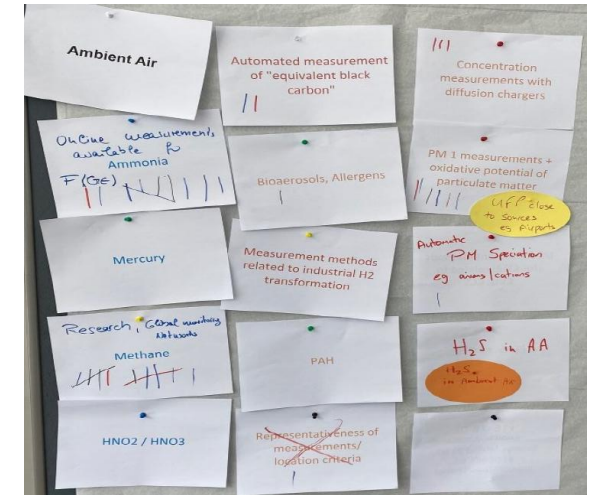 Ambient Air
Online measurements
available for
Ammonia
F (GE)
Mercury
Research, Global monitoring
Networks
Methane
HNO2 / HNO3
Automated measurement
of "equivalent black
carbon"
Bioaerosols, Allergens
Measurement methods
related to industrial H2
transformation
PAH
Representativeness of
measurements/
location criteria
Concentration
measurements with
diffusion chargers
PM 1 measurements +
oxidative potential of
particulate matter
UFP close
to sources
eg Airports
Automatic
PM Speciation
eg anions/cations
H2S in AA
H2S
in Ambient Air